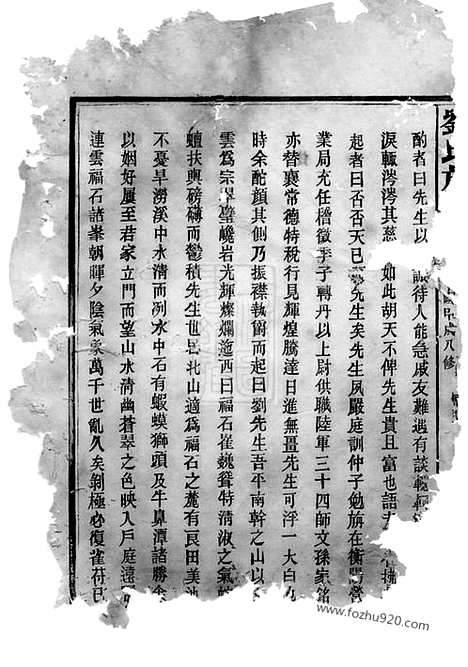 劉氏
八修
酌者曰先生以 誠待人能急戚友難遇有談輒
淚輒滂滂其慈 如此胡天不俾先生貴且富也語
起者曰否否天已 先生矣先生夙嚴庭訓仲子勉旃在衡陽營
業局充任稽徵季子轉丹以上尉供職陸軍三十四師文孫家銘
亦替襄常德特稅行見輝煌騰達日進無畺先生可浮一大白
時余酡顏其側乃振襟執爵而起曰劉先生吾平南幹之山以
雲爲宗 巉岩光輝燦爛迤西曰福石崔巍聳特清淑之氣
蟺扶輿磅礴而鬱積先生世居北山適爲福石之麓有良田美池
不憂旱澇溪中水清而冽水中石有蝦蟆獅頭及牛鼻潭諸勝余
以姻好屢至君家立門而望山水清幽蒼翠之色映入戶庭遠
連雲福石諸峯朝暉夕陰氣象萬千世亂久矣剝極必復雀苻已
www.fozhu920.com